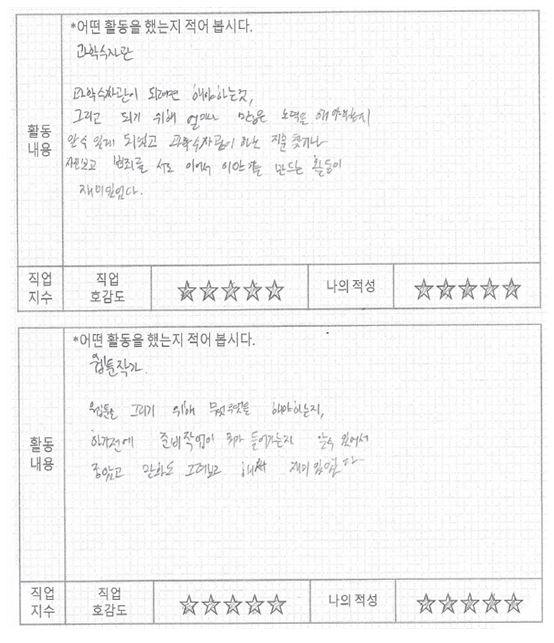 *어떤 활동을 했는지 적어 봅시다.
과학수사관
과학수사관이 되려면 해야하는것,
그리고 되기 위해 얼마나 많은 노력을 해야하는지
알 수 있게 되었고 과학수사관이 하는 지문 찾기나
보고 범죄를 서로 이어서 이야기를 만드는 활동이
재미있었다.
활동
내용
직업
지수
직업
호감도
☆☆☆☆☆
나의 적성
☆☆☆☆☆
*어떤 활동을 했는지 적어 봅시다.
웹툰작가.
웹툰을 그리기 위해 무엇을 해야하는지,
하기전에 준비작업이 뭐가 들어가는지 알 수 있어서
좋았고 만화도 그려보고 해서 재미있었다
활동
내용
직업
지수
직업
호감도
☆☆☆☆☆
나의 적성
☆☆☆☆☆